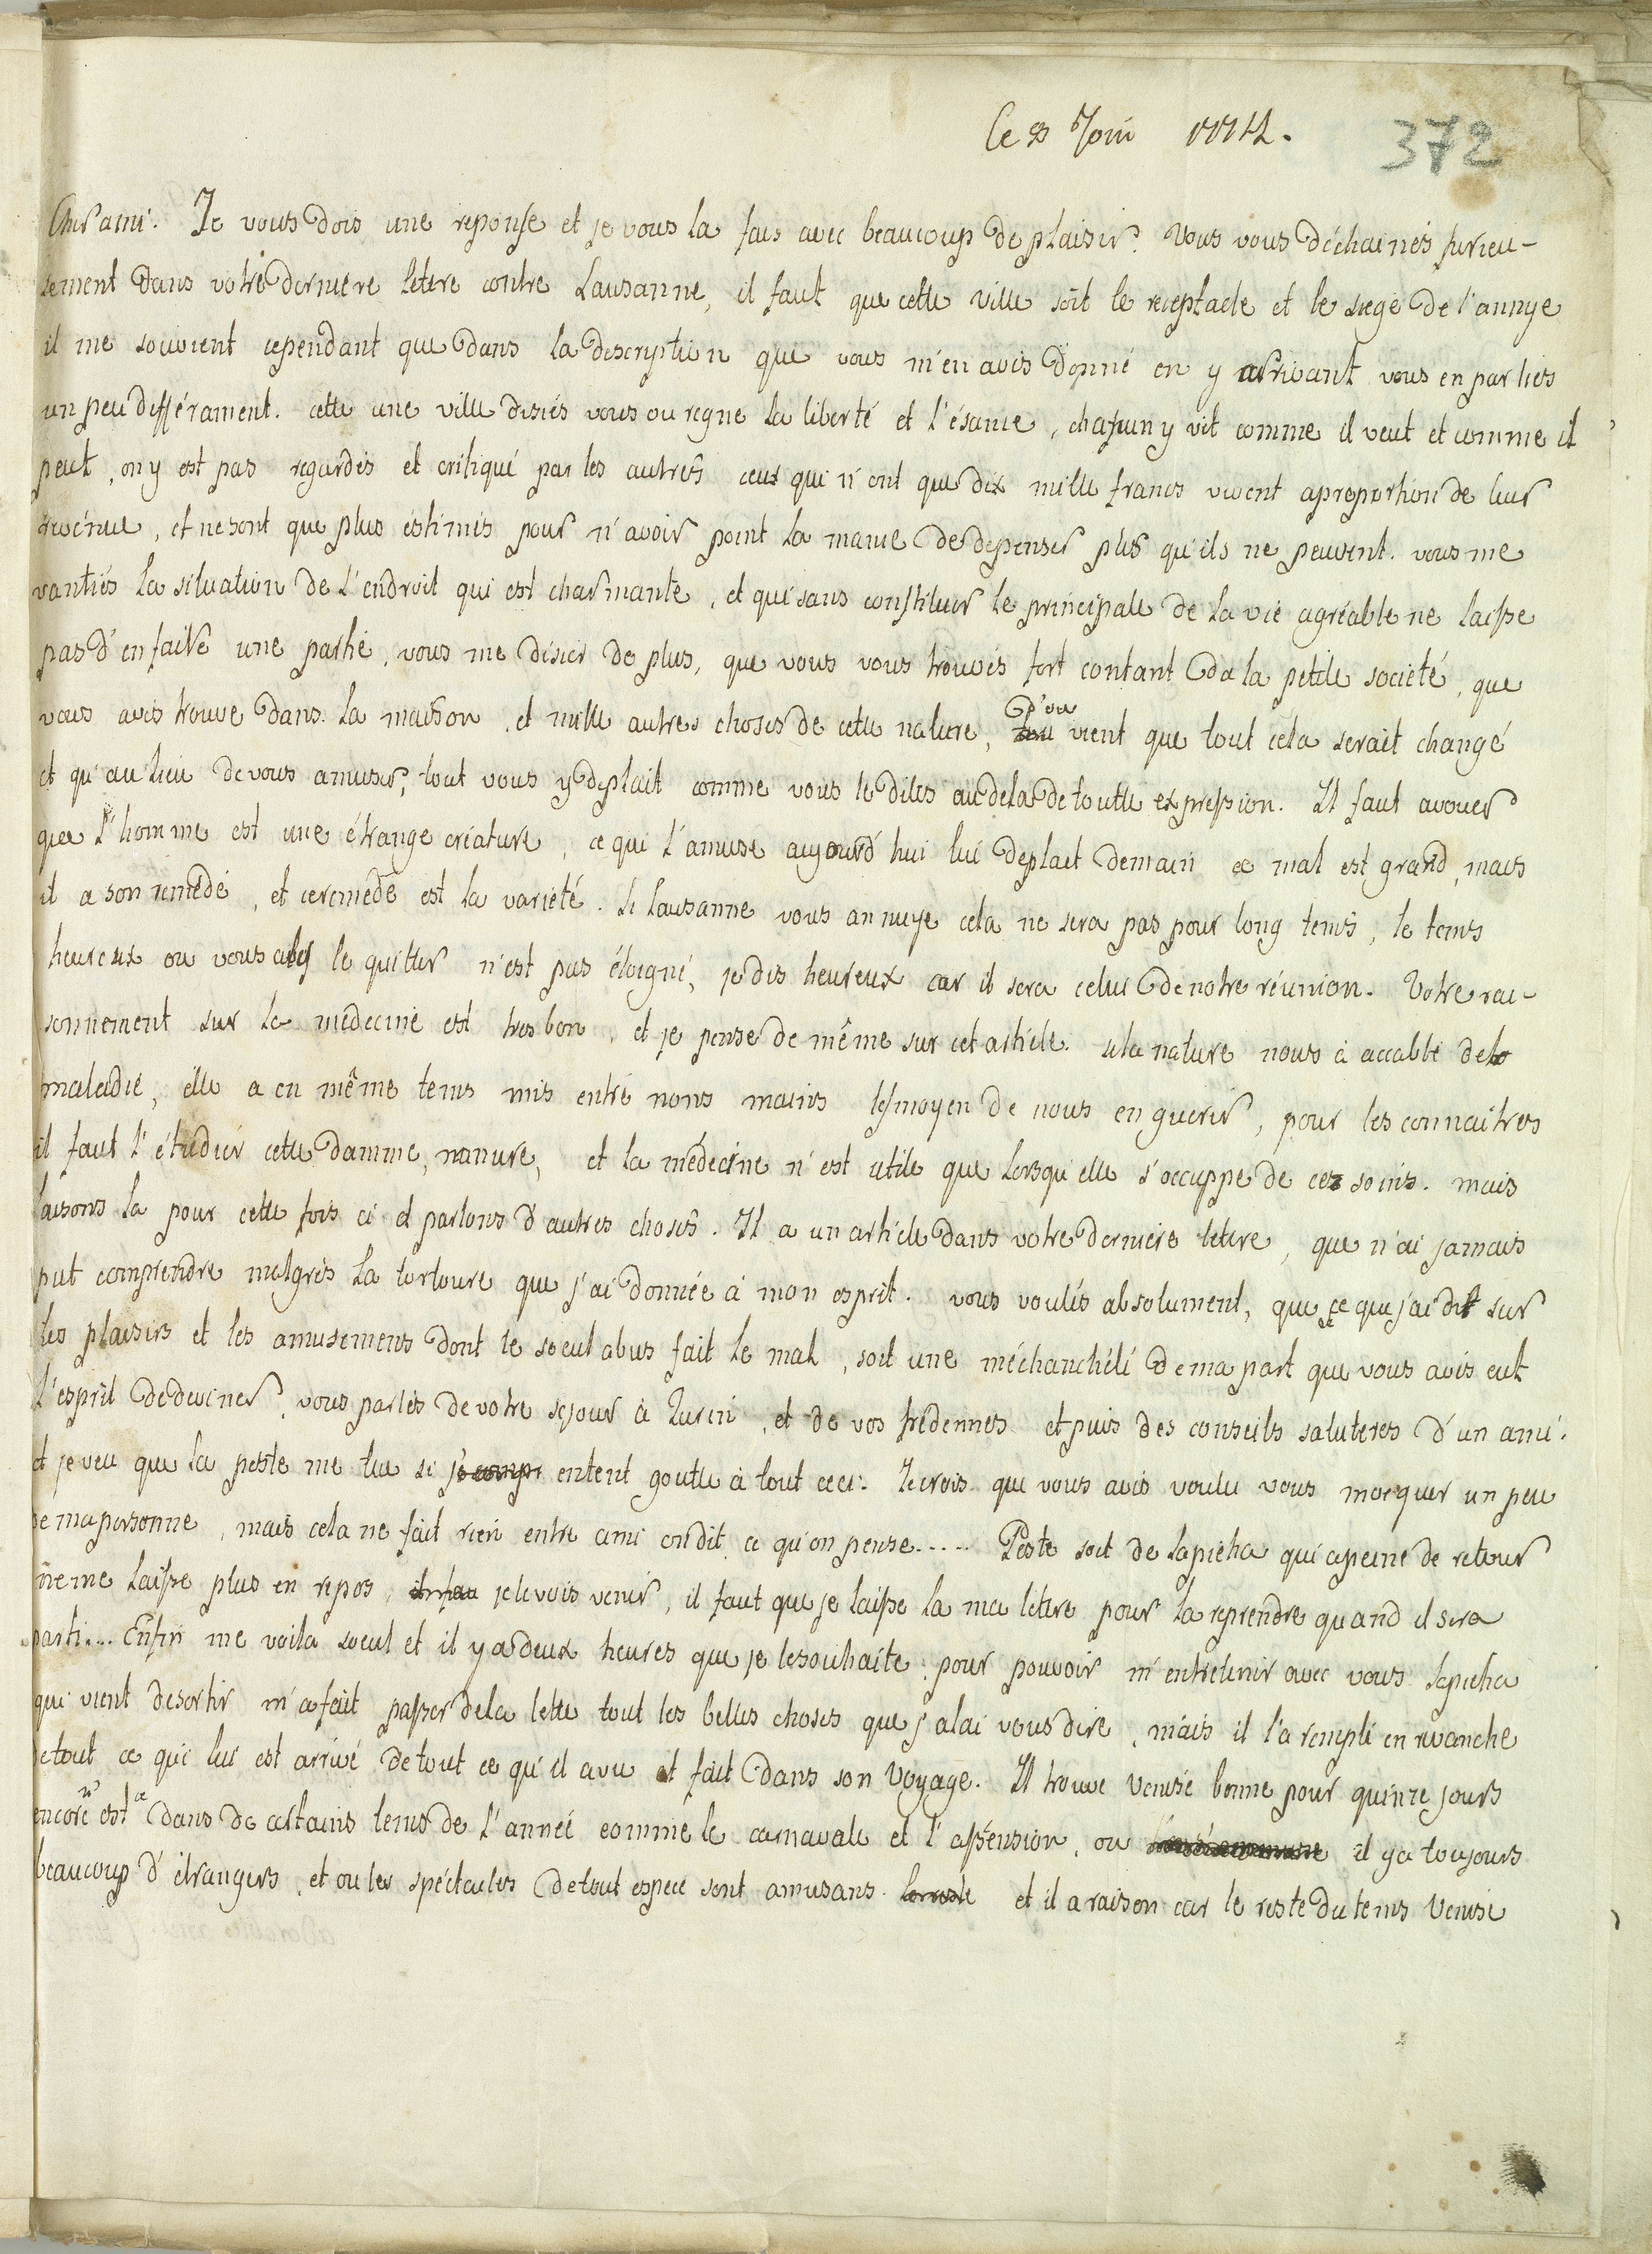 Ce 8 Join 1774.
372
Cher ami. Je vous dois une reponse et je vous la fais avec beaucoup de plaisir. Vous vous déchainés furieu-
sement dans votre derniere letere contre Lausanne, il faut que cette ville soit le receptacle et le siege de l'annye
il me souvient cependant que dans la descryption que vous m'en avés donné en y arrivant vous en parliés
un peu différament. cette une ville disiés vous ou regne la liberté et l'ésance, chaqun y vit comme il veut et comme il
peut, on y est pas regardés et critiqué par les autres ceux qui n'ont que dix mille francs vivent aproportion de leur
revénue, et ne sont que plus éstimés pour n'avoir point la manie de depenser plus qu'ils ne peuvent. vous me
vantiés la situation de l'endroit qui est charmante, et qui sans constituer le principale de la vie agréable ne laisse
pas d'en faire une partie, vous me disiés de plus, que vous vous trouvés fort contant de la petite société, que
vous avés trouvé dans la maison et mille autres choses de cette nature, d'ou vient que tout cela serait changé
et qu'au lieu de vous amuser, tout vous y deplait comme vous le dites au dela de toutte expression. Il faut avouer
que l'homme est une étrange créature, ce qui l'amuse aujourd'hui lui deplait demain ce mal est grand, mais
il a son remédé, et ce remède est la varieté. Si Lausanne vous annuye cela ne sera pas pour long tems, le tems
heureux ou vous alés le quitter n'est pas éloigné, je dis heureux car il sera celui de notre réunion. Votre rai-
sonnement sur la médecine est tres bon, et je pense de même sur cet article. si la nature nous à accablé de
maladie, elle a en même tems mis entre nons mains les moyen de nous en guerir, pour les connaitres
il faut l'étudier cette damme, nature, et la médecine n'est utile que lorsqu'elle s'occuppe de ces soins. mais
laisons la pour cette fois ci et parlons d'autres choses. Il a un article dans votre derniere letere, que n'ai jamais
put comprendre malgrés la tortoure que j'ai donnée à mon esprit. vous voulés absolument, que ce que j'ai dit sur
les plaisirs et les amusemens dont le soeul abus fait le mal, soit une méchancheté de ma part que vous avés eut
l'esprit de deviner, vous parlés de votre sejour à Turin, et de vos frédennes et puis des conseils saluteres d'un ami.
et je veu que la peste me tue si j'e comp entent goutte à tout ceci. Je crois que vous avés voulu vous mocquer un peu
de ma personne, mais cela ne fait rien entre ami on dit ce qu'on pense..... Peste soit de Sapieha qui apeine de retour
ne me laisse plus en repos, je le vois venir, il faut que je laisse la ma letere pour la reprendre quand il sera
parti.... Enfin me voila soeul et il y a deux heures que je le souhaite pour pouvoir m'entretenir avec vous Sapieha
qui vient de sortir m'a fait passer de la tette tout les belles choses que j'alai vous dire, mais il l'a rempli en revanche
de tout ce qui lui est arrivé de tout ce qu'il a vu et fait dans son voyage. Il trouve Venise bonne pour quinze jours
encore n'est ce dans de certains tems de l'année comme le carnavale et l'assénsion, ou il y a toujours
beaucoup d'étrangers, et ou les spéctacles de tout espece sont amusans. le reste et il a raison car le reste du tems Venise